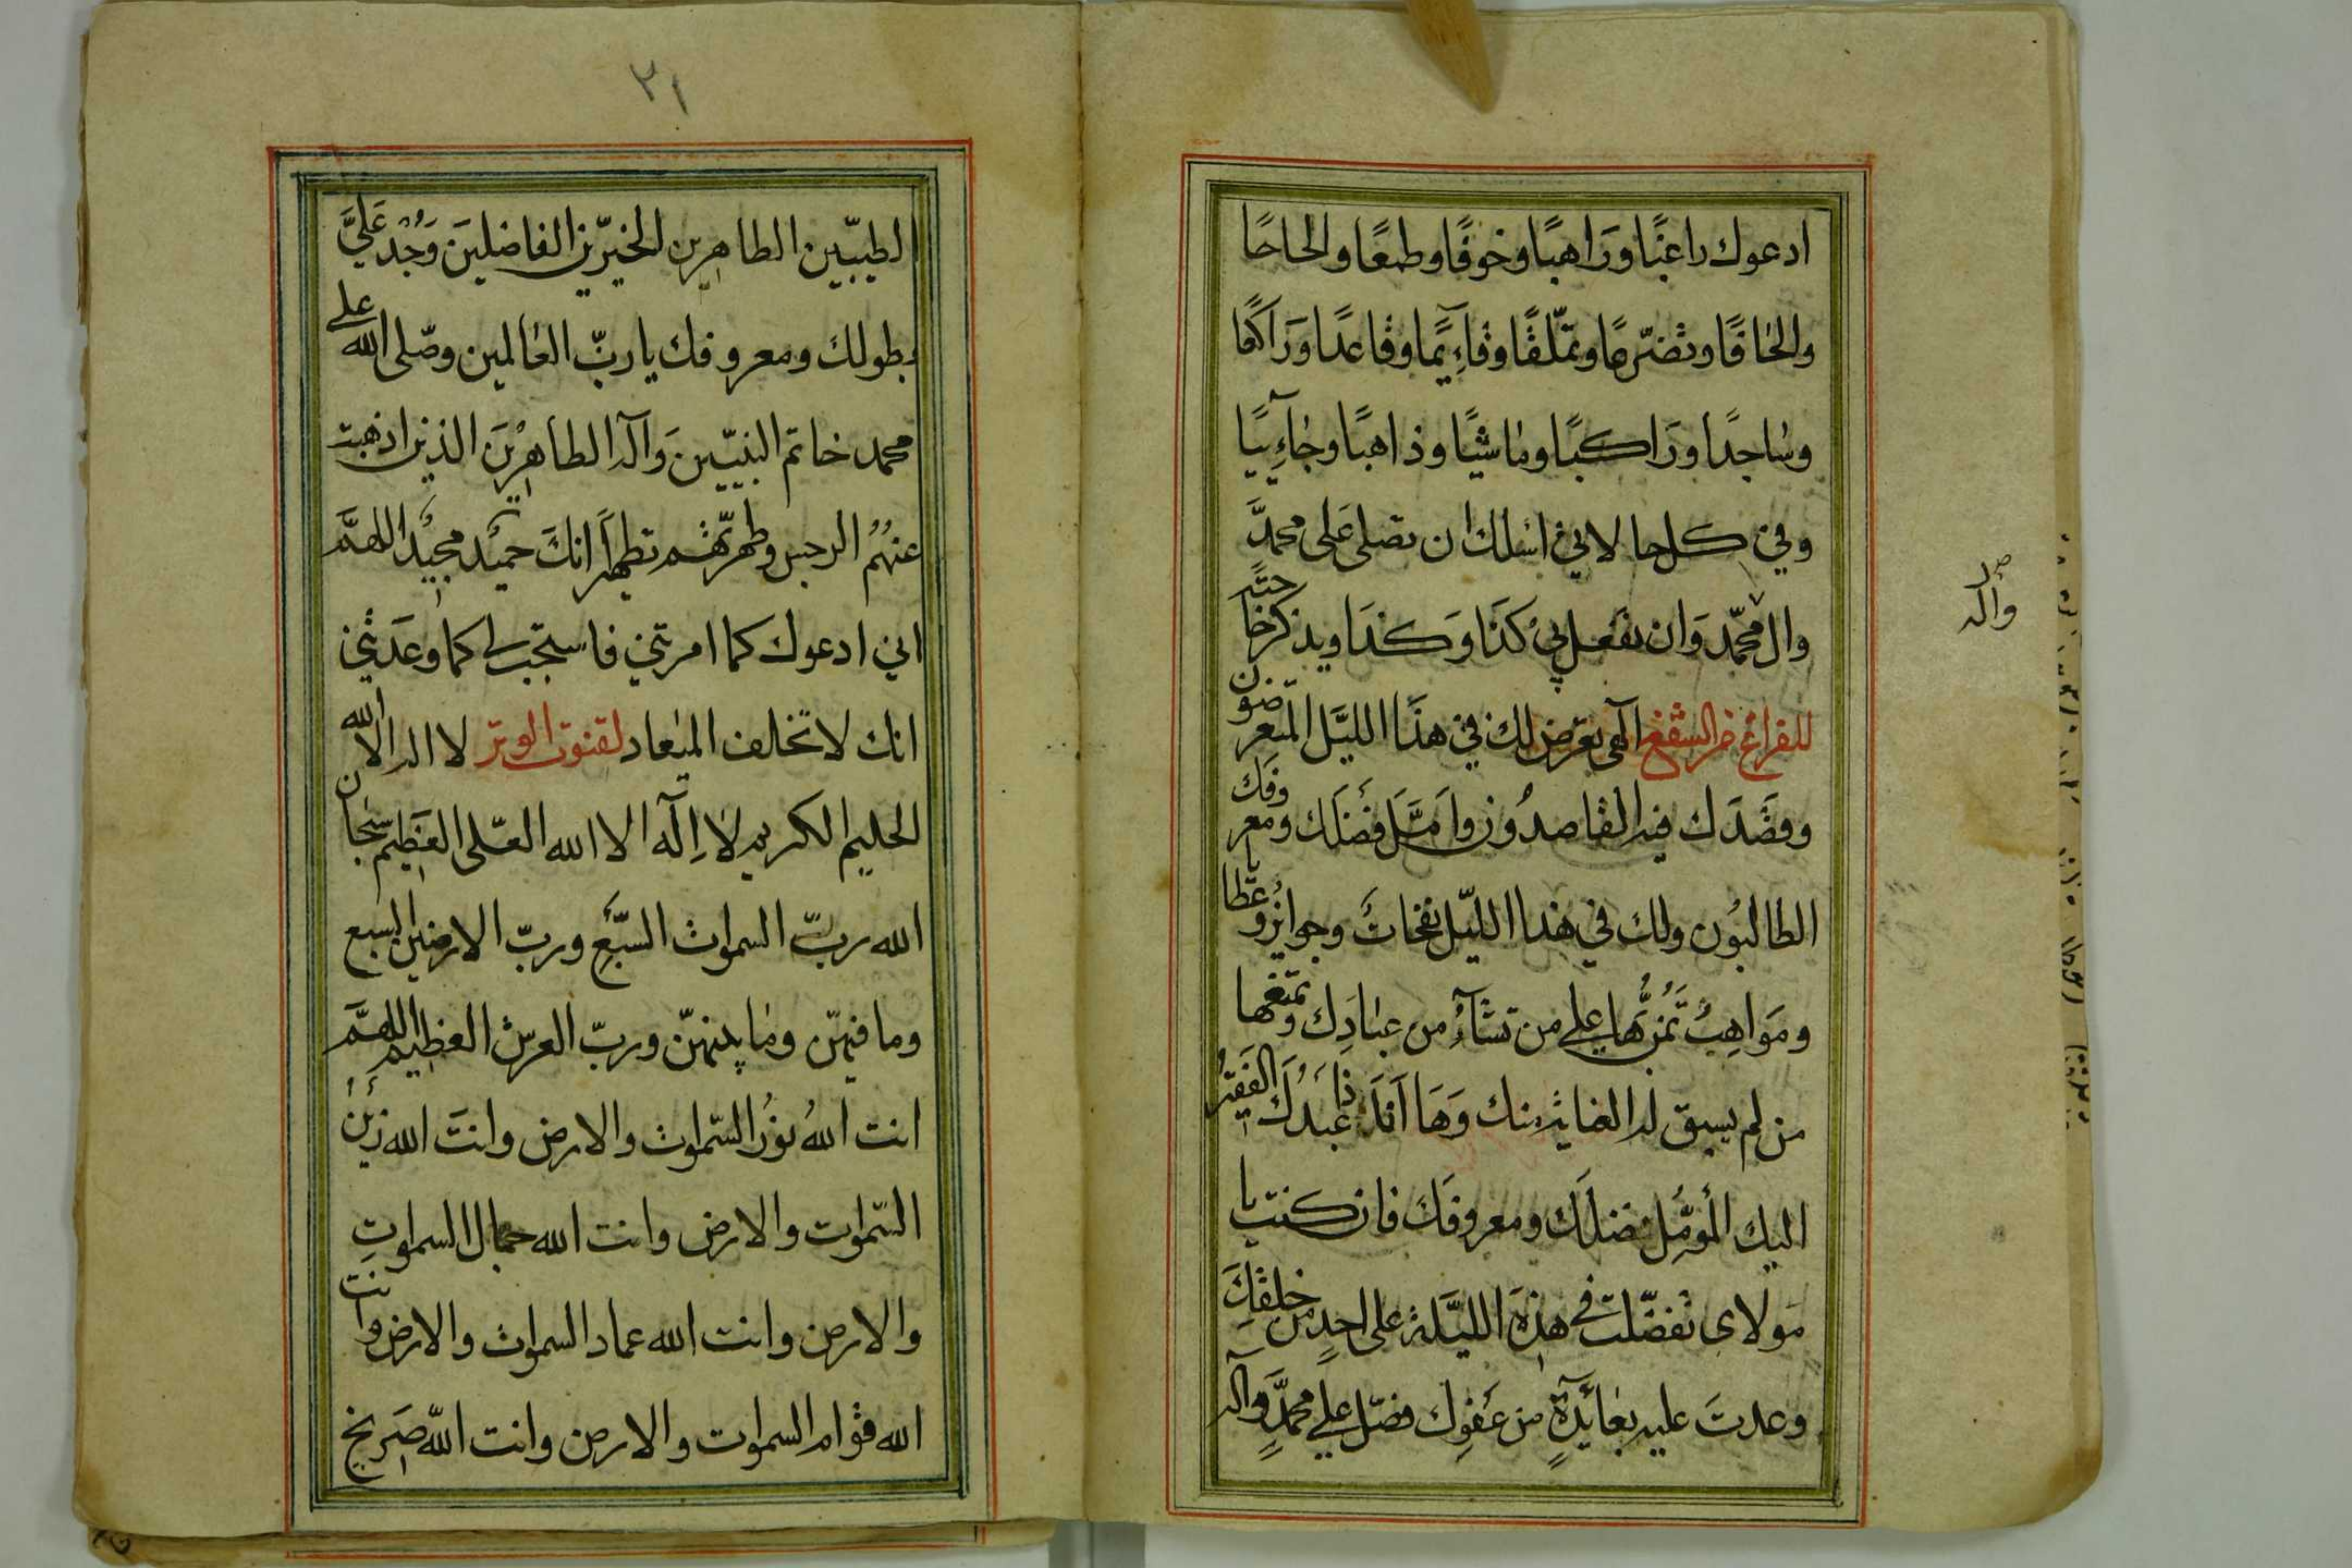 ادعوك راغبًا وَرَاهبًا وخوفًا وطمعًا والحاحًا
والحاقًا وتضرّعًا وتملّقًا وقآءِيمًا وقاعدًا وَرَاكعًا
وساجدًا وَرَاكبًا وماشيًا وذاهبًا وجآءِيًا
وفي كل حالاتي اسئلك ان تصلى عَلى محمدَّ
وال محمّد وَان تفعل بي كَذَا وَكذَا ويذكر حاجته
وآله
للفراغ من الشفع الهى تعرض لك في هذَا الليَّل المتعرضون
وقصَدَك فيه القاصدُون وَامَّلَ فضلَك ومعروفَك
الطالبُون ولك في هذا الليّل نفحاتُ وجوايز وعطايا
ومَواهِبُ تمُنُّ بها على من تشآءُ من عبادِك وتمنعها
من لم يسبق له العناية منك وَهَا اَنَا ذا عَبدُكَ الفقيرُ
اليك المُؤمِّل فضلَك ومعروفَك فان كنت يا
مَولاى تفضّلت في هذِهِ الليَّلة على احدٍ من خلقِكَ
وعدتَ عليه بعآئِدةٍ من عَفوِك فصّل على محمدٍَّ وآله
٢١
الطيبّين الطاهرين الخيرّين الفاضلينَ وَجُد عَليَّ
بطولك ومعروفك يا ربّ العالمين وصّلى الله على
محمد خاتم النبيّينَ وَآله الطاهرْينَ الذين اذهبت
عنهُم الرجس وطهرّتهم تطهيرًا انكَ حميُد مجيُد اللهمَّ
اني ادعوك كما امرتني فاستجب لى كما وعَدتني
انك لا تخلف الميعاد لقنوت الوتر لا اله الا الله
الحليم الكريم لا اِلَه الا الله العّلى العَظيم سبحان
الله ربّ السموات السَّبع وربّ الارضين السبع
وما فيهّن وما بينهنّ وربّ العرش العظيم اللهمَّ
انت اللهُ نوُرُ السّموات والارض وانتَ الله زَينُ
السّموات والارض وانت الله جمال السموات
والارض وانت الله عماد السموات والارض وانت
الله قوام السموات والارض وانت اللّه صَريخ